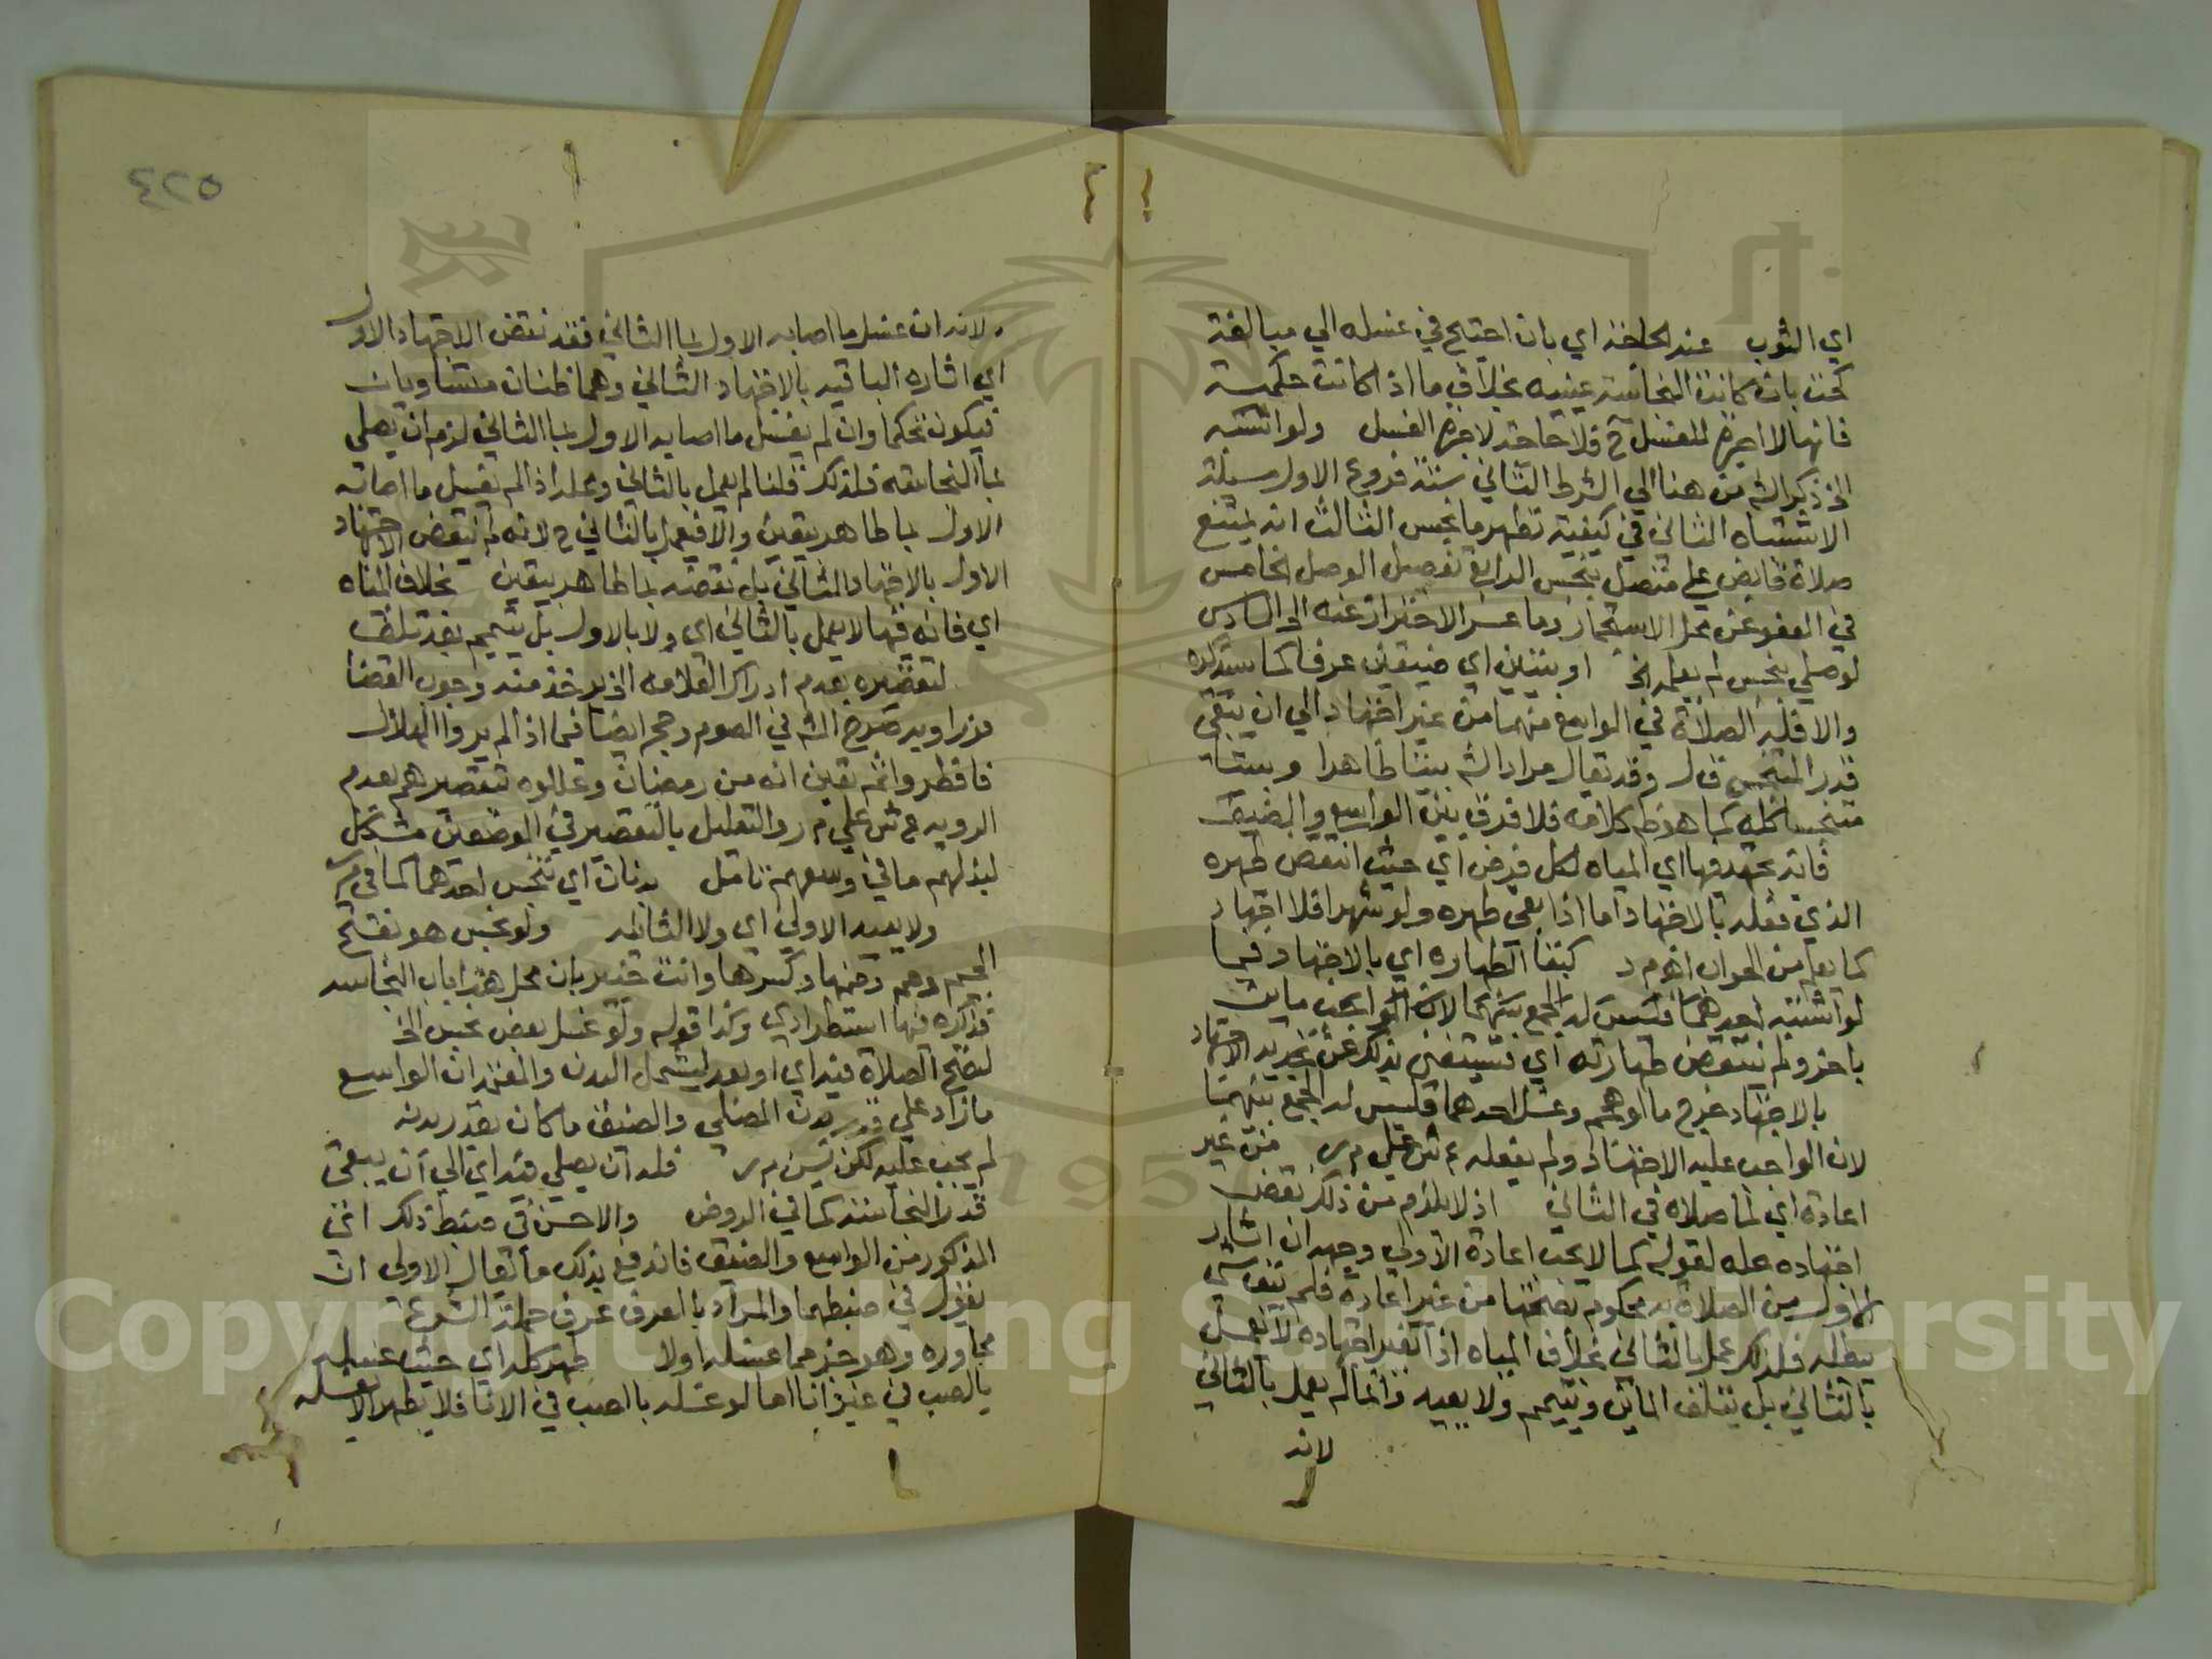 اي الثوب عند الحاجة اي بان احتيج في غسله الي مبالغة
كحت بان كانت النجاسة عينيه بخلاف ما اذا كانت حكمية
فانها لا اجرة للغسل ح فلا حاجة لاجرة الغسل ولو اشتبه
الخ ذكر الش من هنا الي الشرط الثاني ستة فروع الاول مسئلة
الاشتباه الثاني في كيفية تطهر ما نجس الثالث انه يمتنع
صلاة قابض علي متصل بنجس الرابع تفصيل الوصل الخامس
في العفو عن محل الاستجمار وما عسر الاحتراز عنه الخ السادس
لو صلي بنجس لم يعلمه الخ او بيتين اي ضيقين عرفا كما سيذكره
والا فله الصلاة في الواسع منهما من غير اجتهاد الي ان يبقي
قدر المتنجس قال وقد يقال مراد الش بيتا طاهرا وبيتا
متنجسا كله كما هو ظ كلامه فلا فرق بين الواسع والضيق
فانه يجتهد فيها اي المياه لكل فرض اي حيث انتقض طهره
الذي فعله بالاجتهاد اما اذا بقي طهره ولو شهرا فلا اجتهاد
كما يعلم من الجواب اهـ م د كبقا الطهارة اي بالاجتهاد فيما
لو اشتبه احدهما فليس له الجمع بينهما لان الواجب ماين
باخر ولم تنتقض طهارته اي فيستغني بذلك عن تجديد الاجتهاد
بالاجتهاد خرج ما لو هجم وغسل احدهما فليس له الجمع بينهما
لان الواجب عليه الاجتهاد ولم يفعله ع ش علي م ر من غير
اعادة اي لما صلاه في الثاني اذ لا يلزم من ذلك نقض
اجتهاده علة لقوله كما لا يجب اعادة الاولي وجهه ان اثار
الاول من الصلاة به محكوم بصحتها من غير اعادة فلم يبق شي
يبطله فلذلك عمل بالثاني بخلاف المياه اذا تغير اجتهاده لا يعمل
بالثاني بل يتلف المائين ويتيمم ولا يعيد وانما لم يعمل بالثاني
لانه
٤٢٥
لانه ان غسل ما اصابه الاول بما الثاني فقد نقض الاجتهاد الاول
اي اثاره الباقيه بالاجتهاد الثاني وهما ظنان متساويان
فيكون تحكما وان لم يغسل ما اصابه الاول بما الثاني لزم ان يصلي
بما النجاسة فلذلك قلنا لم يعمل بالثاني ومحله اذا لم يغسل ما اصابه
الاول بما طاهر بيقين والا فيعمل بالثاني ح لانه لم ينقض الاجتهاد
الاول بالاجتهاد الثاني بل نقضه بما طاهر بيقين بخلاف المياه
اي فانه فيها لا يعمل بالثاني اي ولا بالاول بل يتيمم بعد تلف
لتقصيره بعدم ادراك العلامة الخ يوخذ منه وجوب القضا
فورا وبه صرح الش في الصوم وحج ايضا فيما اذا لم يروا الهلال
فافطروا ثم تبين انه من رمضان وعللوه بتقصيرهم بعدم
الرويه ع ش علي م ر والتعليل بالتقصير في الموضعين مشكل
لبذلهم ما في وسعهم تامل بدنان اي تنجس احدهما كما في م ر
ولا يعيد الاولي اي ولا الثانيه ولو نجس هو بفتح
الجيم وهم وضمها وكسرها وانت خبير بان محل هذا باب النجاسه
فذكره فيها استطرادي وكذا قوله ولو غسل بعض نجس الخ
لتصح الصلاة فيه اي او بعد ليشمل البدن والمعتمد ان الواسع
ما زاد علي قدر بدن المصلي والضيق ما كان بقدر بدنه
لم يجب عليه لكن يسن م ر فله ان يصلي فيه اي الي ان يبقي
قدر النجاسة كما في الروض والاحسن في ضبط ذلك اي
المذكور من الواسع والضيق فاندفع بذلك ما يقال الاولي ان
يقول في ضبطهما والمراد بالعرف عرف حملة الشرع
مجاوره وهو جزء مما غسله اولا طهر كله اي حيث غسله
بالصب في غير انا اما لو غسله بالصب في الانا فلا يطهر الا بغسله